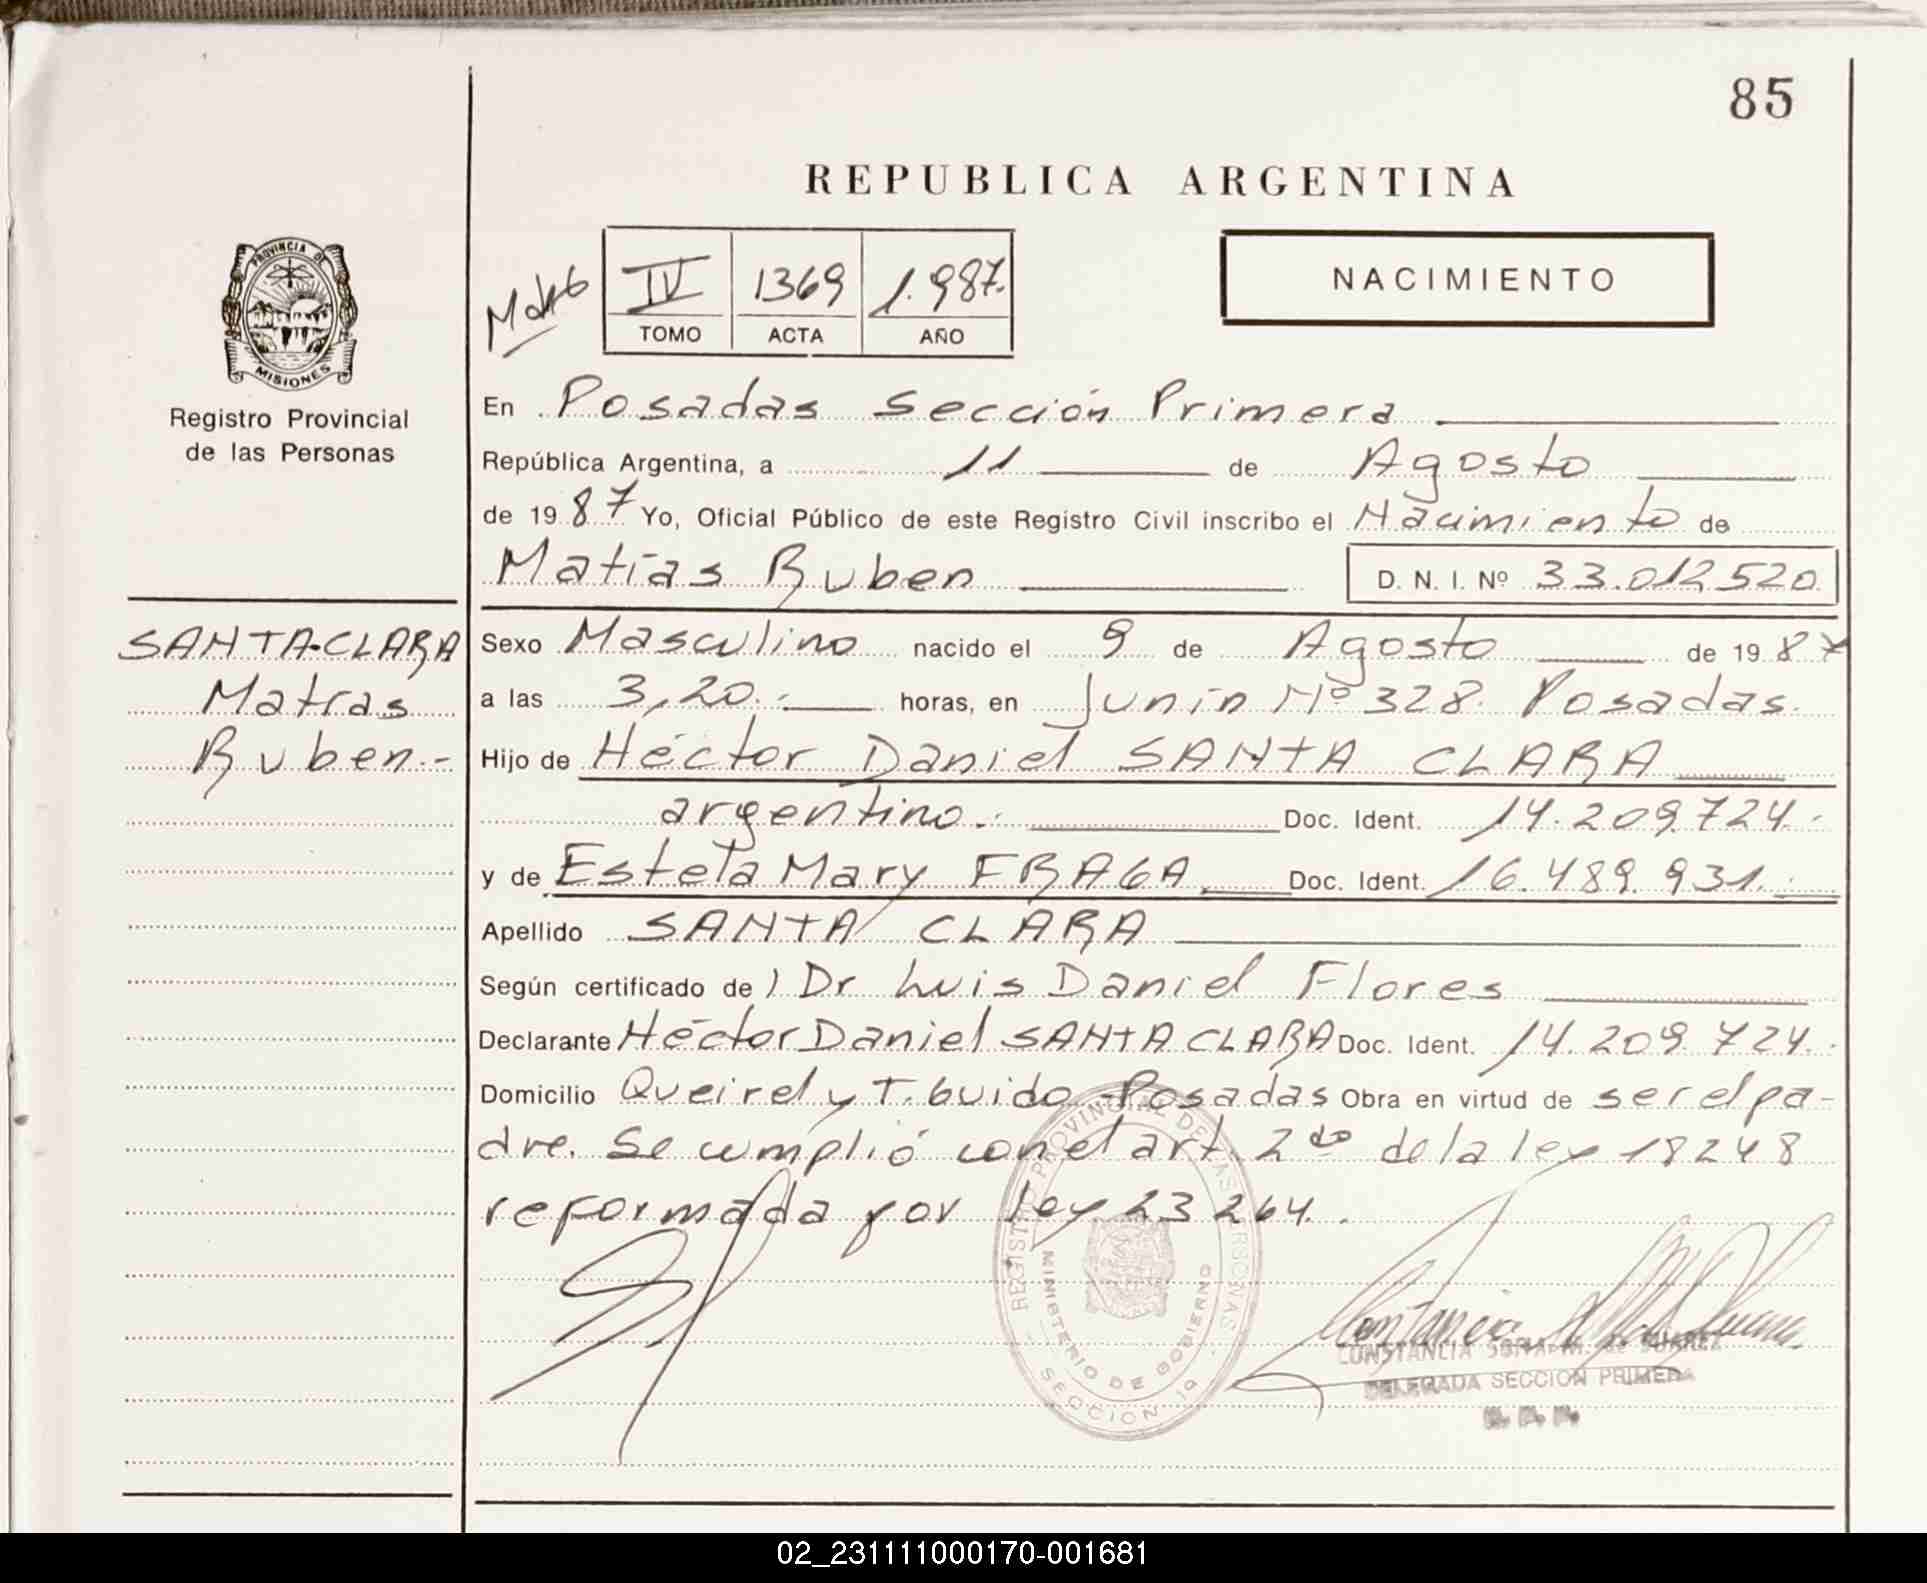 85
REPUBLICA ARGENTINA
PROVINCIA DE
MISIONES
Registro Provincial
de las Personas
IV 1369 1.987.
TOMO ACTA AÑO
NACIMIENTO
En Posadas Sección Primera
República Argentina, a 11 de Agosto
de 1987 Yo, Oficial Público de este Registro Civil inscribo el Nacimiento de
Matías Ruben D. N. I. Nº 33.012520.
SANTA-CLARA
Matias
Ruben.-
Sexo Masculino nacido el 9 de Agosto de 1987
a las 3,20.- horas, en Junín Nº 328. Posadas.
Hijo de Héctor Daniel SANTA CLARA
argentino.- Doc. Ident. 14.209.724.-
y de Estela Mary FRAGA Doc. Ident. 16.489.931.-
Apellido SANTA CLARA
Según certificado de ) Dr Luis Daniel Flores
Declarante Héctor Daniel SANTA CLARA Doc. Ident. 14.209.724.-
Domicilio Queirel y T. Guido Posadas Obra en virtud de ser el pa-
dre. Se cumplió con el art. 2do de la ley 18248
reformada por ley 23264.-
REGISTRO PROVINCIAL DE LAS PERSONAS
MINISTERIO DE GOBIERNO
SECCION 1a
CONSTANCIA de SUAREZ
DELEGADA SECCION PRIMERA
02_231111000170-001681